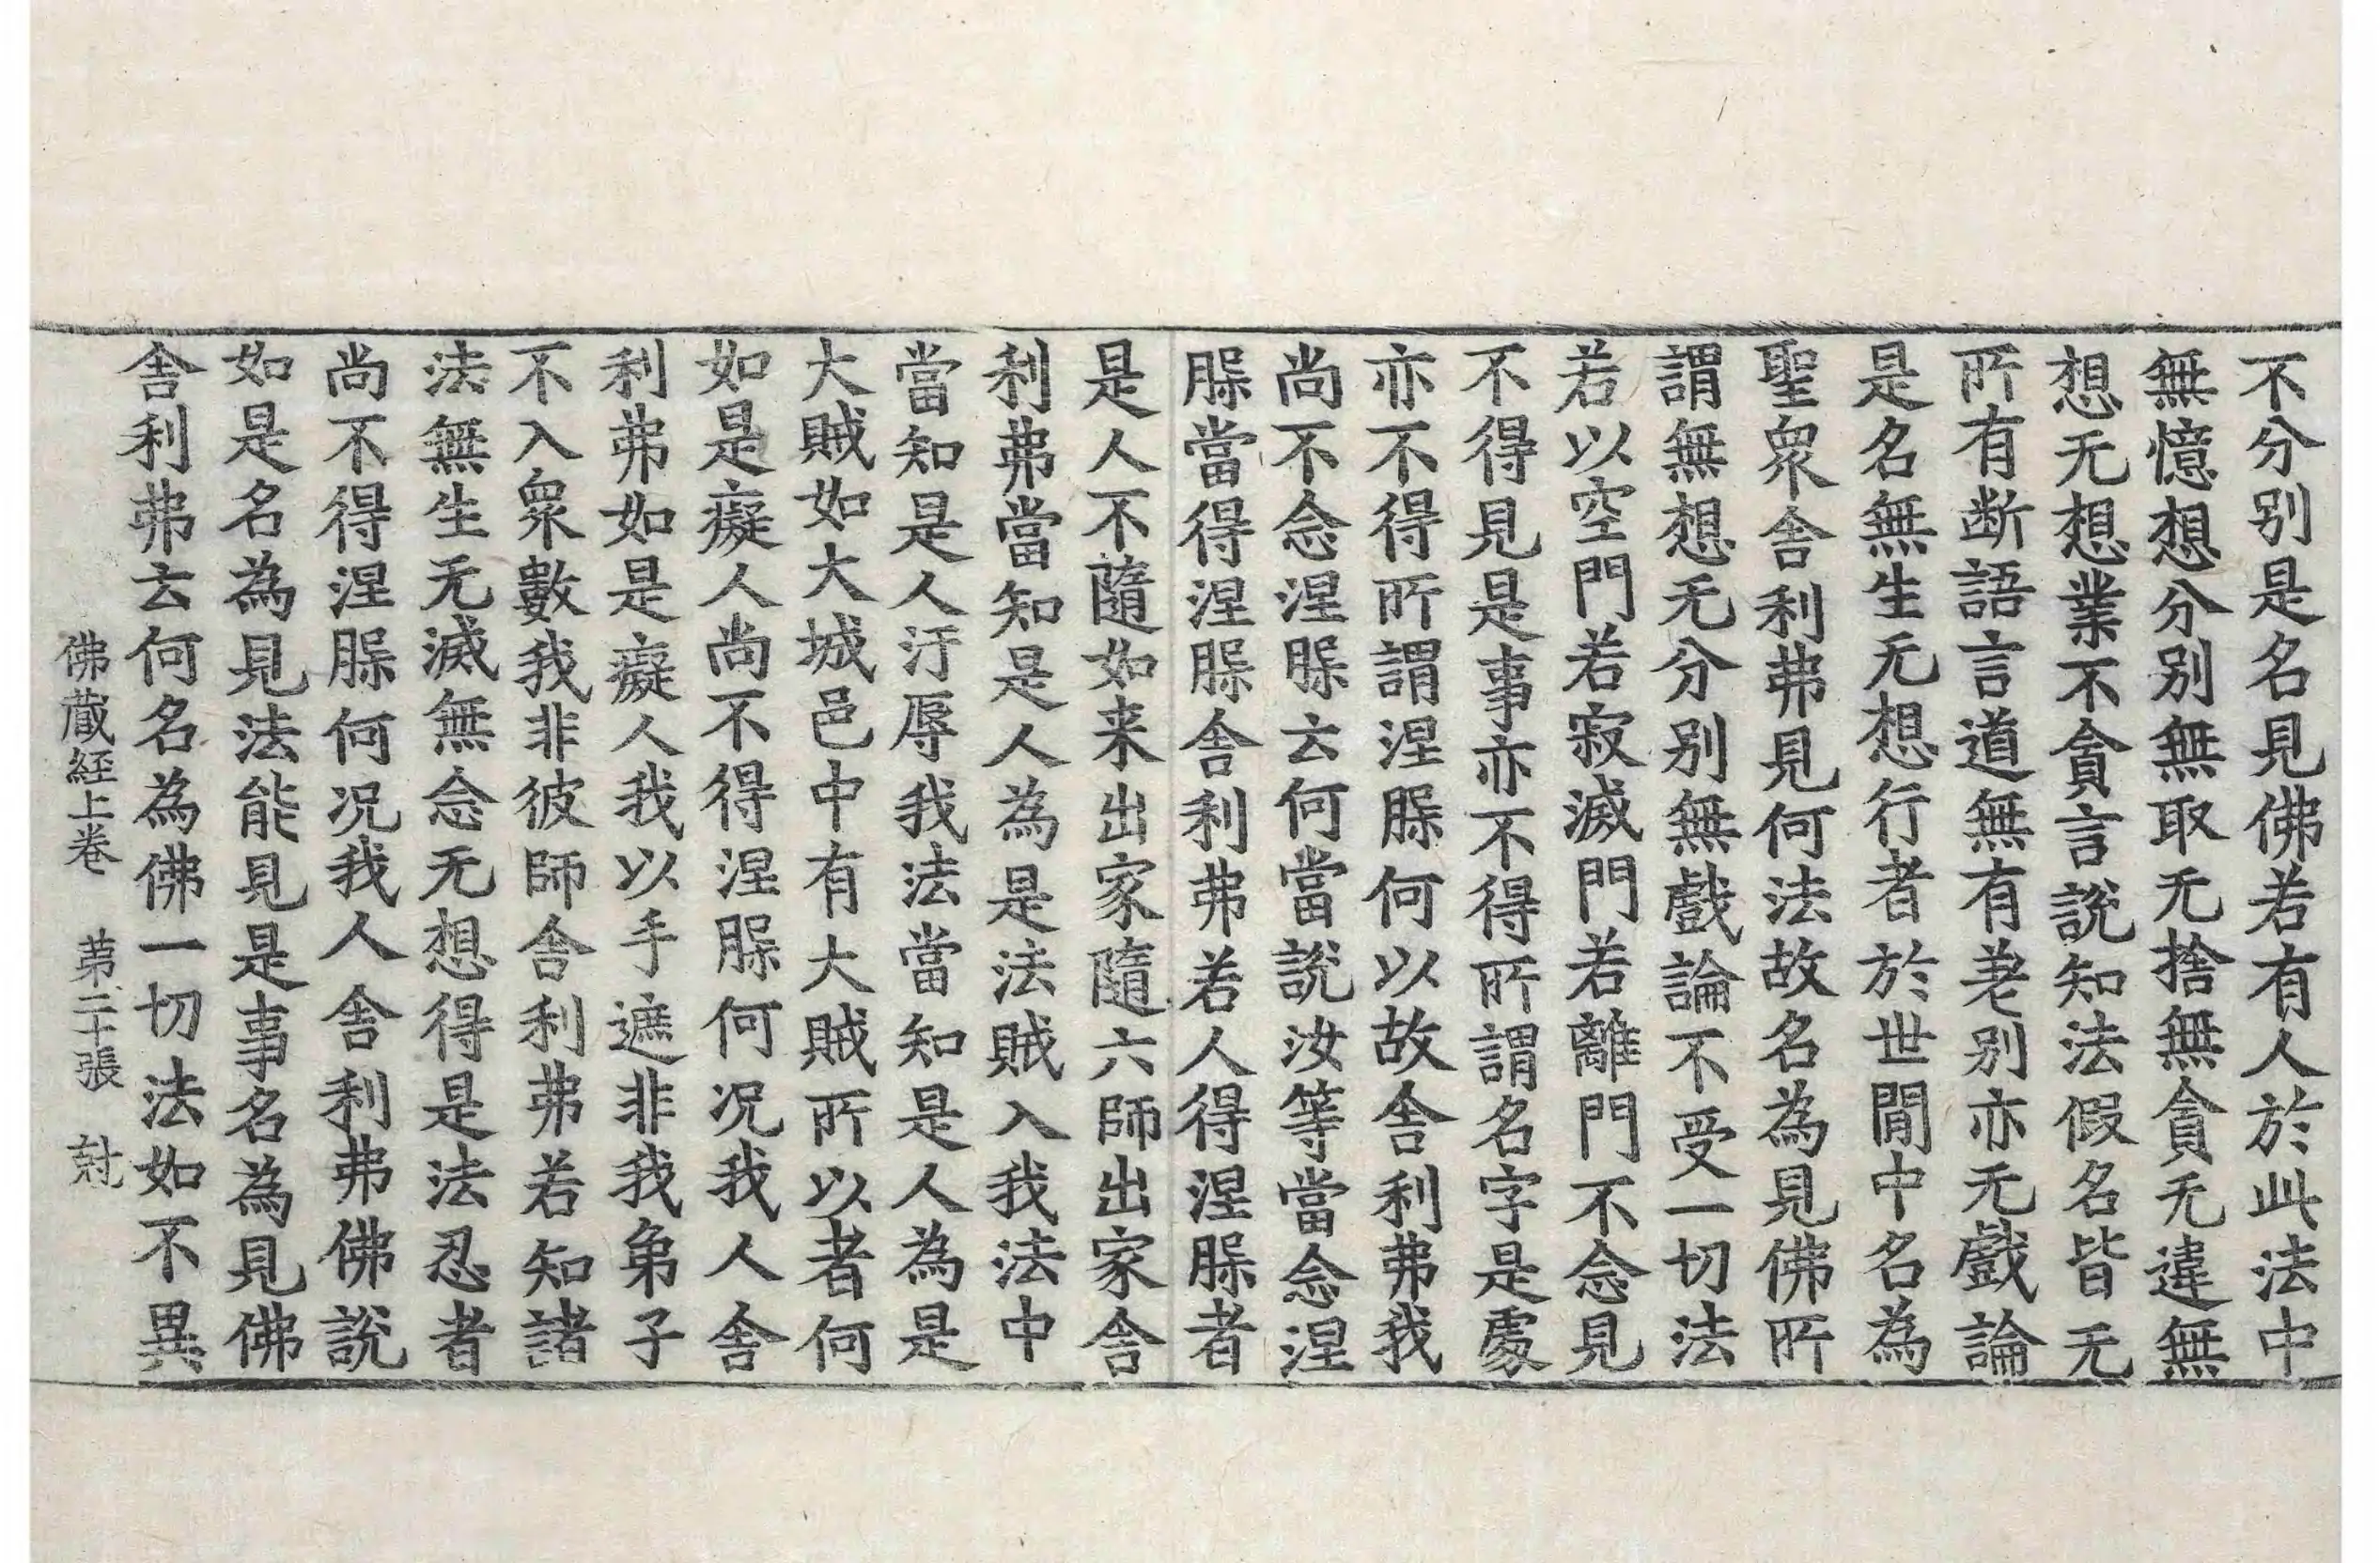 不分別是名見佛若有人於此法中
無憶想分別無取无捨無貪无違無
想无想業不貪言說知法假名皆无
所有断語言道無有差別亦无戲論
是名無生无想行者於世間中名為
聖衆舍利弗見何法故名為見佛所
謂無想无分別無戲論不受一切法
若以空門若寂滅門若離門不念見
不得見是事亦不得所謂名字是處
亦不得所謂涅腂何以故舍利弗我
尚不念涅腂云何當說汝等當念涅
腂當得涅腂舍利弗若人得涅腂者
是人不隨如来出家隨六師出家舍
利弗當知是人為是法賊入我法中
當知是人汙辱我法當知是人為是
大賊如大城邑中有大賊所以者何
如是癡人尚不得涅腂何况我人舍
利弗如是癡人我以手遮非我弟子
不入衆數我非彼師舍利弗若知諸
法無生无滅無念无想得是法忍者
尚不得涅腂何况我人舍利弗佛說
如是名為見法能見是事名為見佛
舍利弗云何名為佛一切法如不異
佛蔵経上卷 第二十張